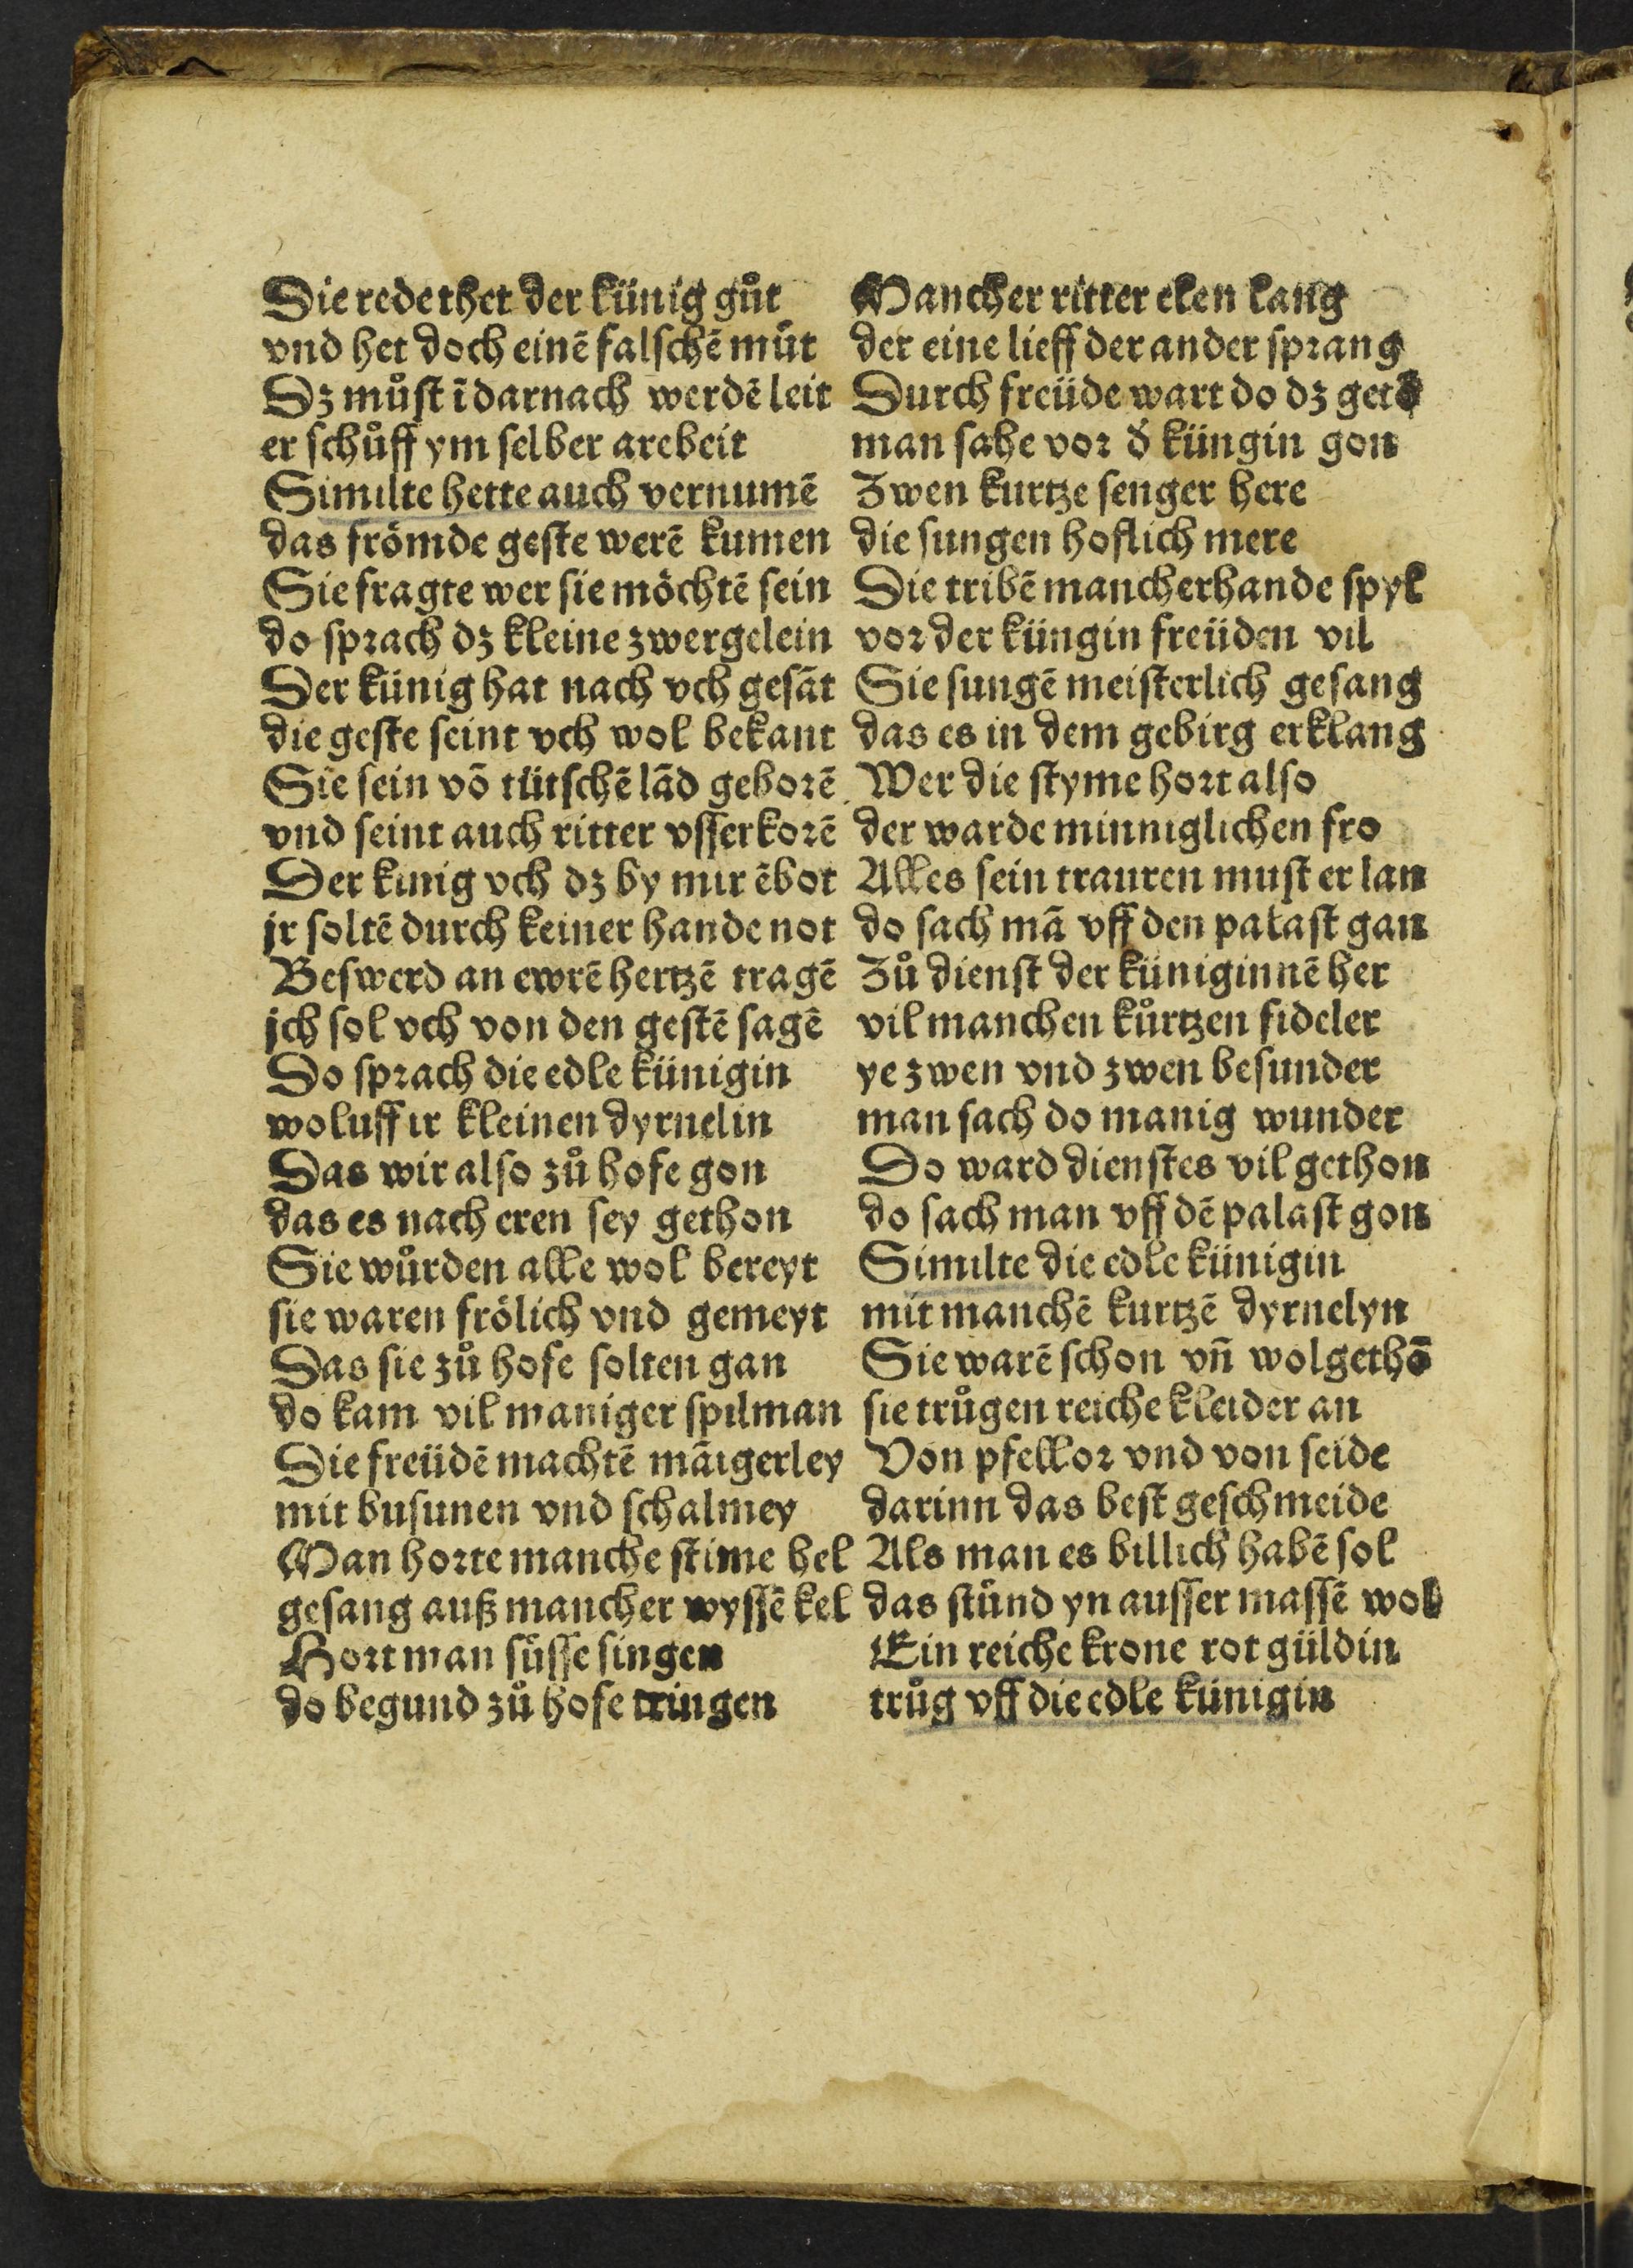 Die rede thet der künig gůt
vnd het doch einē falschē můt
Dz můst ī darnach werdē leit
er schůff ym selber arebeit
Similte hette auch vernumē
das frömde geste werē kumen
Sie fragte wer sie möchtē sein
do sprach dz kleine zwergelein
Der künig hat nach vch gesāt
die geste seint vch wol bekant
Sie sein vō tütschē lād geborē
vnd seint auch ritter vsserkorē
Der künig vch dz by mir ēbot
jr soltē durch keiner hande not
Beswerd an ewrē hertzē tragē
jch sol vch von den gestē sagē
Do sprach die edle künigin
woluff ir kleinen dyrnelin
Das wir also zů hofe gon
das es nach eren sey gethon
Sie wůrden alle wol bereyt
sie waren frölich vnd gemeyt
Das sie zů hofe solten gan
do kam vil maniger spilman
Die freüdē machtē māigerley
mit busunen vnd schalmey
Man horte manche stime hel
gesang auß mancher wyssē kel
Hort man süsse singen
do begund zů hofe tringen
Mancher ritter elen lang
der eine lieff der ander sprang
Durch freüde wart do dz getō
man sahe vor d̄ küngin gon
Zwen kurtze senger here
die sungen hoflich mere
Die tribē mancherhande spyl
vor der küngin freüden vil
Sie sungē meisterlich gesang
das es in dem gebirg erklang
Wer die styme hort also
der warde minniglichen fro
Alles sein trauren must er lan
do sach mā vff den palast gan
Zů dienst der küniginnē her
vil manchen kůrtzen fideler
ye zwen vnd zwen besunder
man sach do manig wunder
Do ward dienstes vil gethon
do sach man vff dē palast gon
Similte die edle künigin
mit manchē kurtzē dyrnelyn
Sie warē schon vn̄ wolgethō
sie trůgen reiche kleider an
Von pfellor vnd von seide
darinn das best geschmeide
Als man es billich habē sol
das stůnd yn ausser massē wol
Ein reiche krone rot güldin
trůg vff die edle künigin